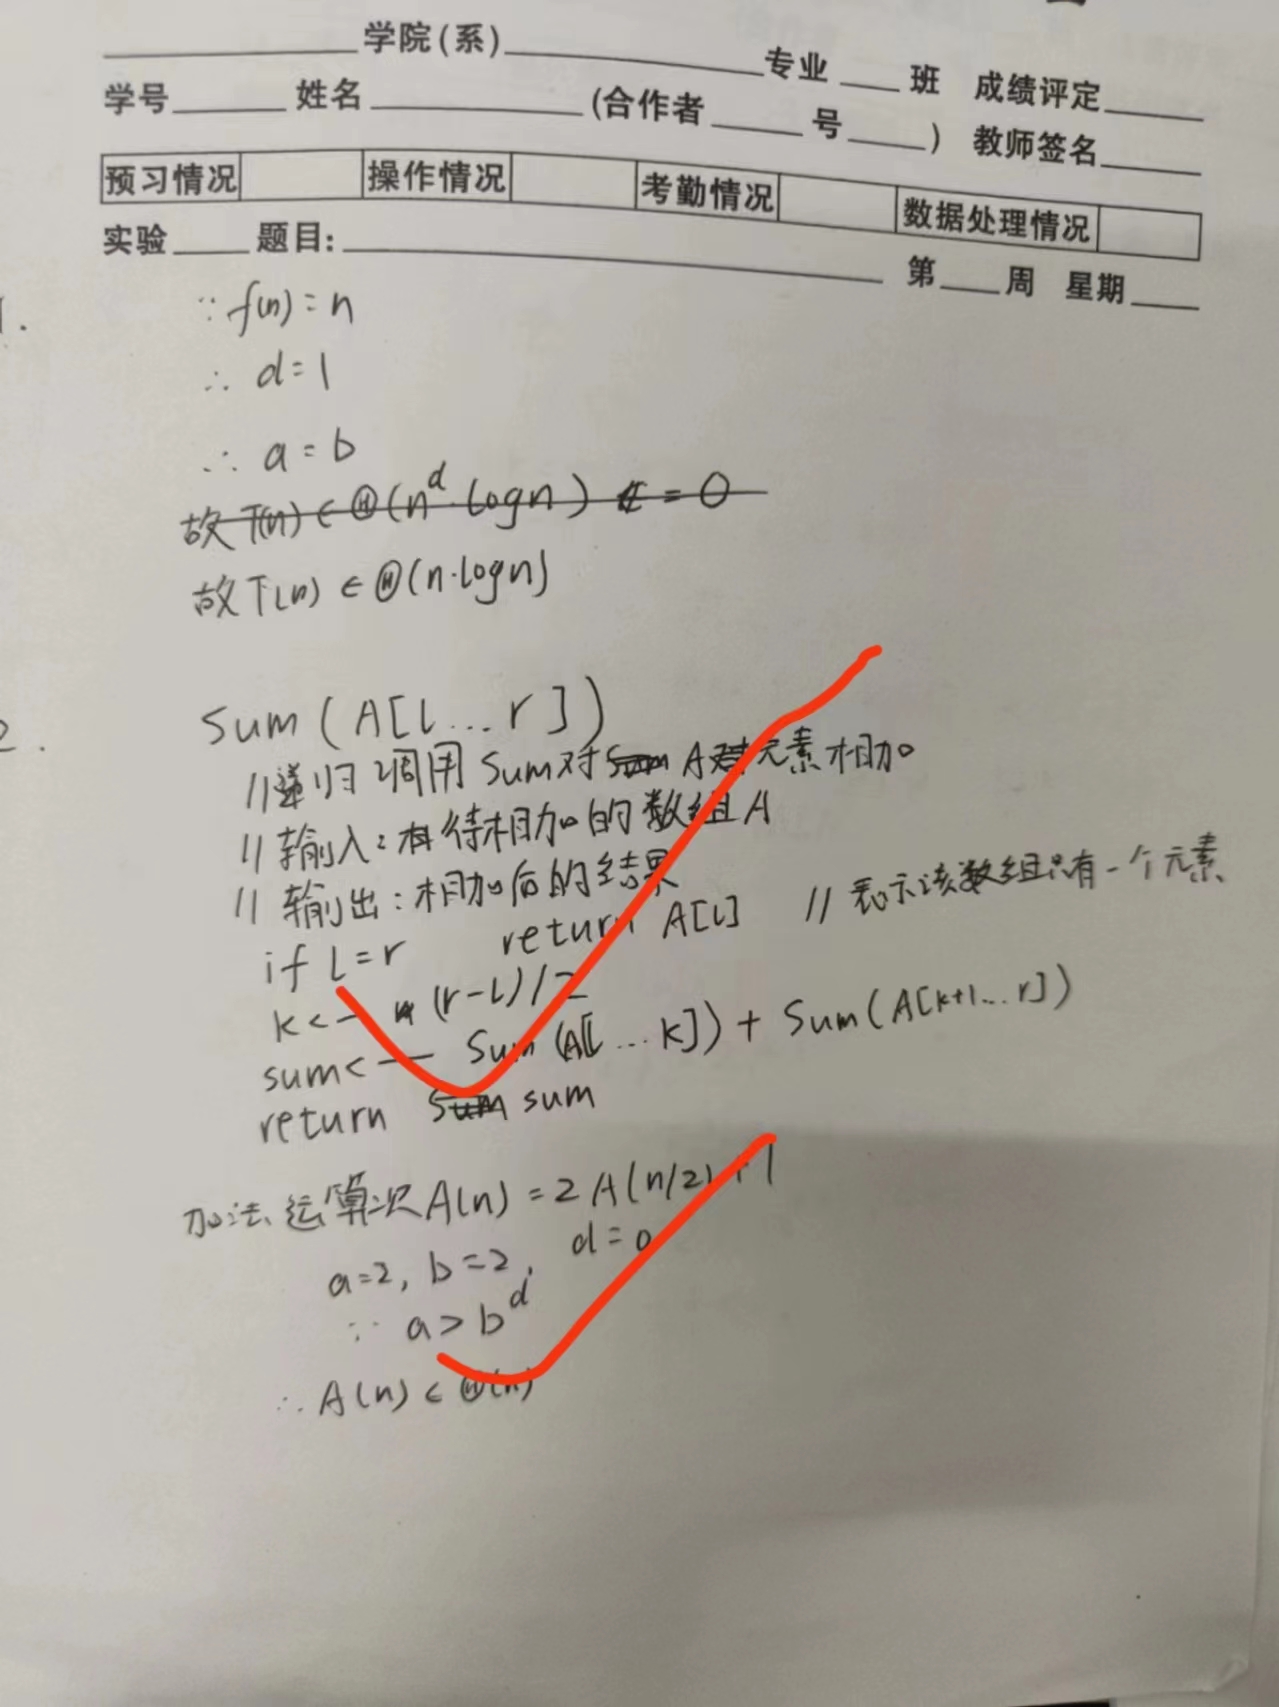 学院(系) 专业 班 成绩评定
学号 姓名 (合作者 号 ) 教师签名
预习情况 操作情况 考勤情况 数据处理情况
实验 题目: 第 周 星期
1. ∵ f(n) = n
∴ d = 1
∴ a = b
故 T(n) ∈ Θ(n^d · logn) = 0
故 T(n) ∈ Θ(n·logn)
2. Sum ( A[l...r] )
//递归调用 Sum对 Sum A 元素相加
//输入:待相加的数组A
//输出:相加后的结果
if l=r return A[l] //表示该数组只有一个元素
k <— (r-l)/2
sum <— Sum (A[l...k]) + Sum(A[k+1...r])
return Sum sum
加法运算次A(n) = 2A(n/2)+1
a=2, b=2, d=0
∵ a > b^d
∴ A(n) ∈ Θ(n)